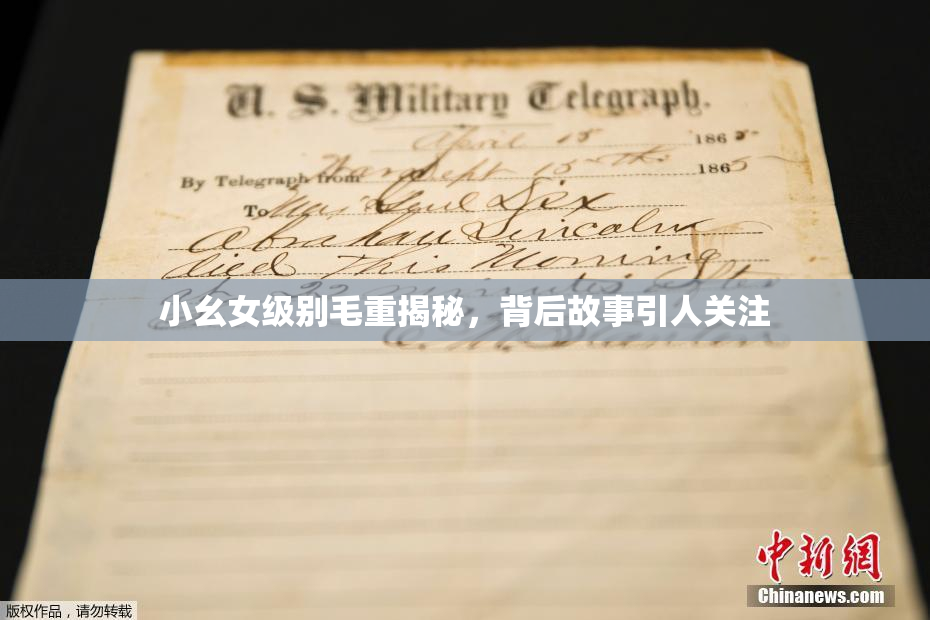 U. S. Military Telegraph.
April 15 1865
By Telegraph from War Dept 15th 1865
To Maj Genl Dix
Abraham Lincoln
died This Morning
at 22 minutes after
小幺女级别毛重揭秘，背后故事引人关注
E. M. Stanton
中新网
Chinanews.com
版权作品，请勿转载